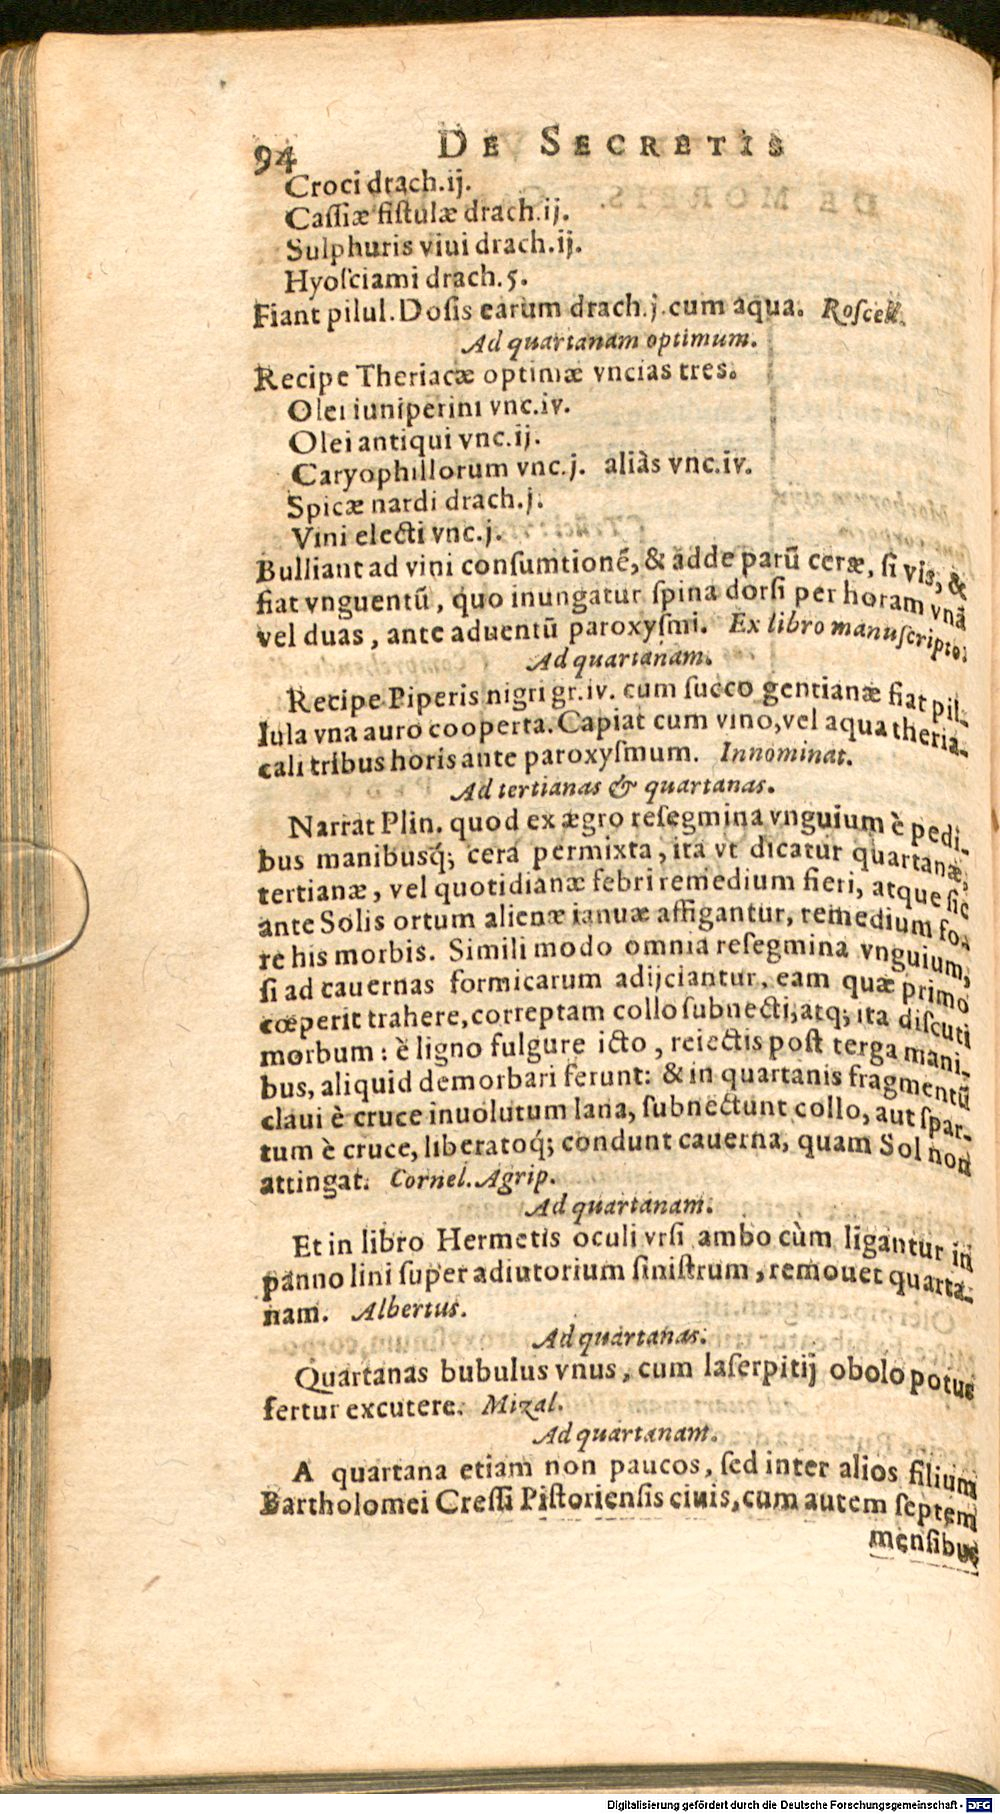 94 DE SECRETIS
Croci drach.ij.
Caſſiæ fiſtulæ drach.ij.
Sulphuris viui drach.ij.
Hyoſciami drach.5.
Fiant pilul. Doſis earum drach.j.cum aqua. Roſcell.
Ad quartanam optimum.
Recipe Theriacæ optimæ vncias tres.
Olei iuniperini vnc.iv.
Olei antiqui vnc.ij.
Caryophillorum vnc.j. aliàs vnc.iv.
Spicæ nardi drach.j.
Vini electi vnc.j.
Bulliant ad vini conſumtionē, & adde parū ceræ, ſi vis, &
fiat vnguentū, quo inungatur ſpina dorſi per horam vnā
vel duas, ante aduentū paroxyſmi. Ex libro manuſcripto.
Ad quartanam.
Recipe Piperis nigri gr.iv. cum ſucco gentianæ fiat pil-
lula vna auro cooperta. Capiat cum vino, vel aqua theria-
cali tribus horis ante paroxyſmum. Innominat.
Ad tertianas & quartanas.
Narrat Plin. quod ex ægro reſegmina vnguium è pedi-
bus manibusq́; cera permixta, ita vt dicatur quartanæ,
tertianæ, vel quotidianæ febri remedium fieri, atque ſic
ante Solis ortum alienæ ianuæ affigantur, remedium fo-
re his morbis. Simili modo omnia reſegmina vnguium,
ſi ad cauernas formicarum adijciantur, eam quæ primo
cœperit trahere, correptam collo ſubnecti, atq; ita diſcuti
morbum: è ligno fulgure icto, reiectis poſt terga mani-
bus, aliquid demorbari ferunt: & in quartanis fragmentū
claui è cruce inuolutum lana, ſubnectunt collo, aut ſpar-
tum è cruce, liberatoq́; condunt cauerna, quam Sol non
attingat. Cornel. Agrip.
Ad quartanam.
Et in libro Hermetis oculi vrſi ambo cùm ligantur in
panno lini ſuper adiutorium ſiniſtrum, remouet quarta-
nam. Albertus.
Ad quartanas.
Quartanas bubulus vnus, cum laſerpitij obolo potus
fertur excutere. Mizal.
Ad quartanam.
A quartana etiam non paucos, ſed inter alios filium
Bartholomei Creſſi Piſtorienſis ciuis, cum autem ſeptem
menſibus
Digitalisierung gefördert durch die Deutsche Forschungsgemeinschaft - DFG